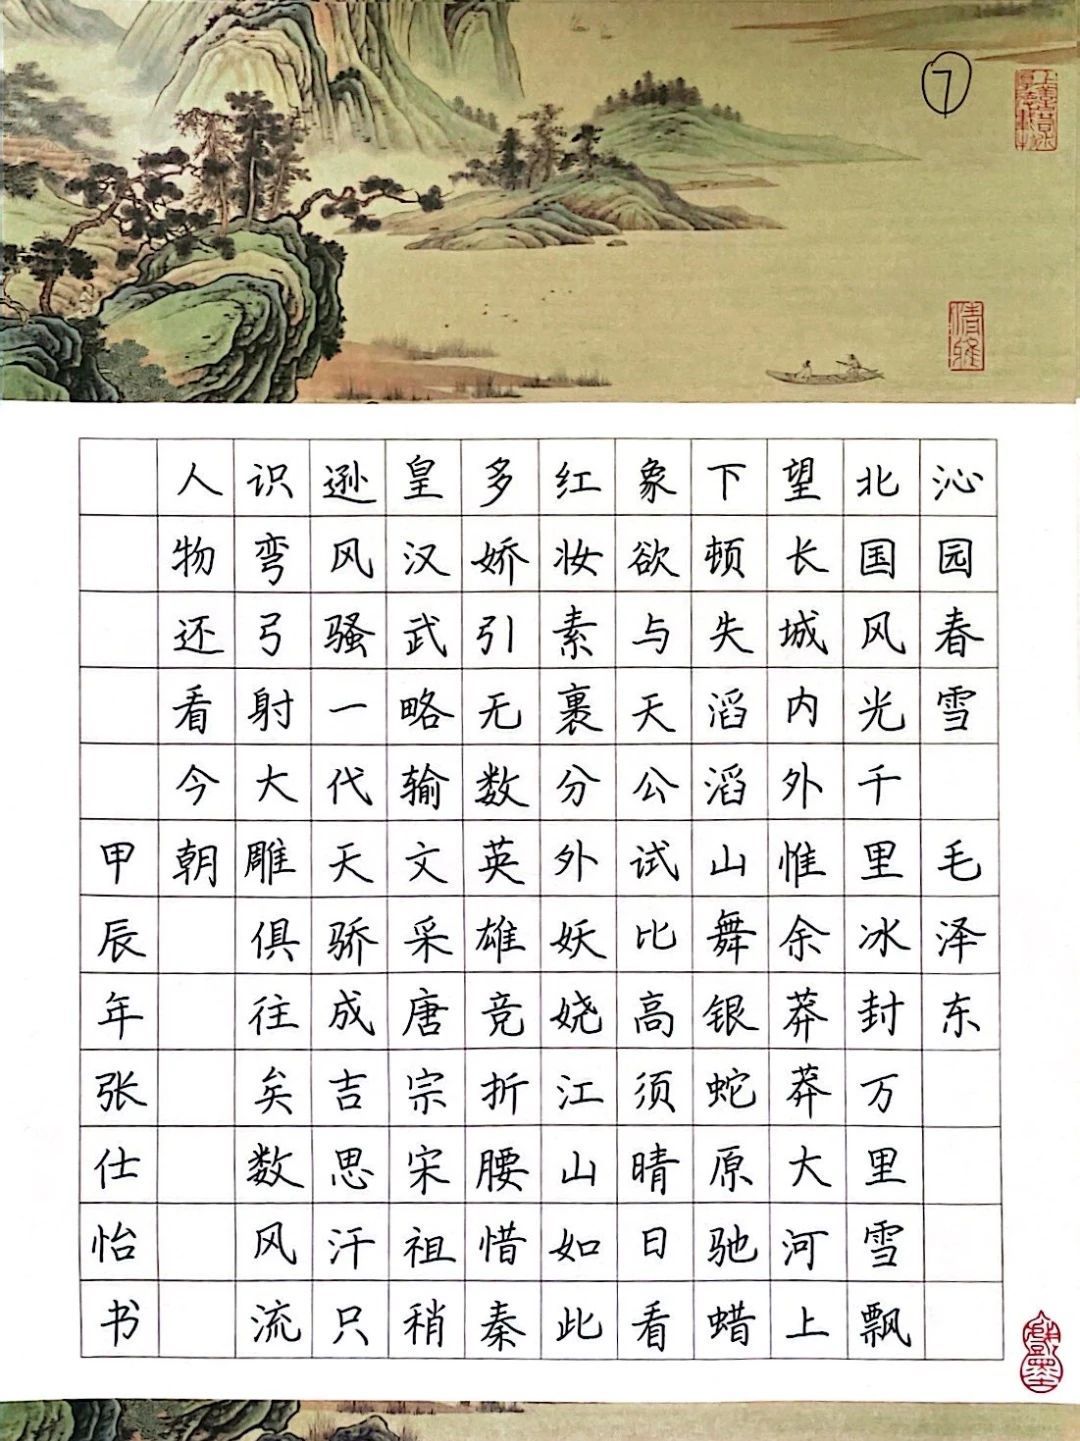 ⑦
清雅
沁园春雪 毛泽东
北国风光千里冰封万里雪飘
望长城内外惟余莽莽大河上
下顿失滔滔山舞银蛇原驰蜡
象欲与天公试比高须晴日看
红妆素裹分外妖娆江山如此
多娇引无数英雄竞折腰惜秦
皇汉武略输文采唐宗宋祖稍
逊风骚一代天骄成吉思汗只
识弯弓射大雕俱往矣数风流
人物还看今朝
甲辰年张仕怡书